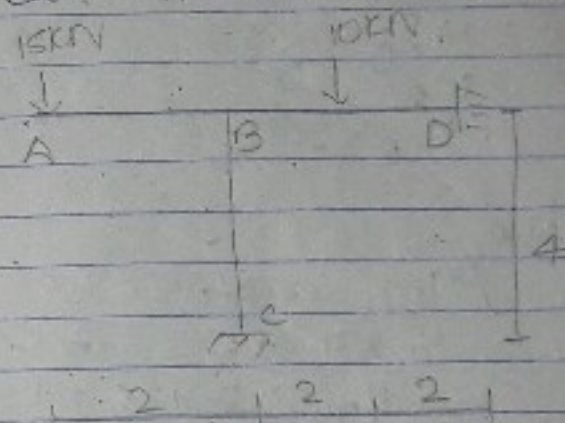 15KN 10KN.
A B D
4
C
2 2 2